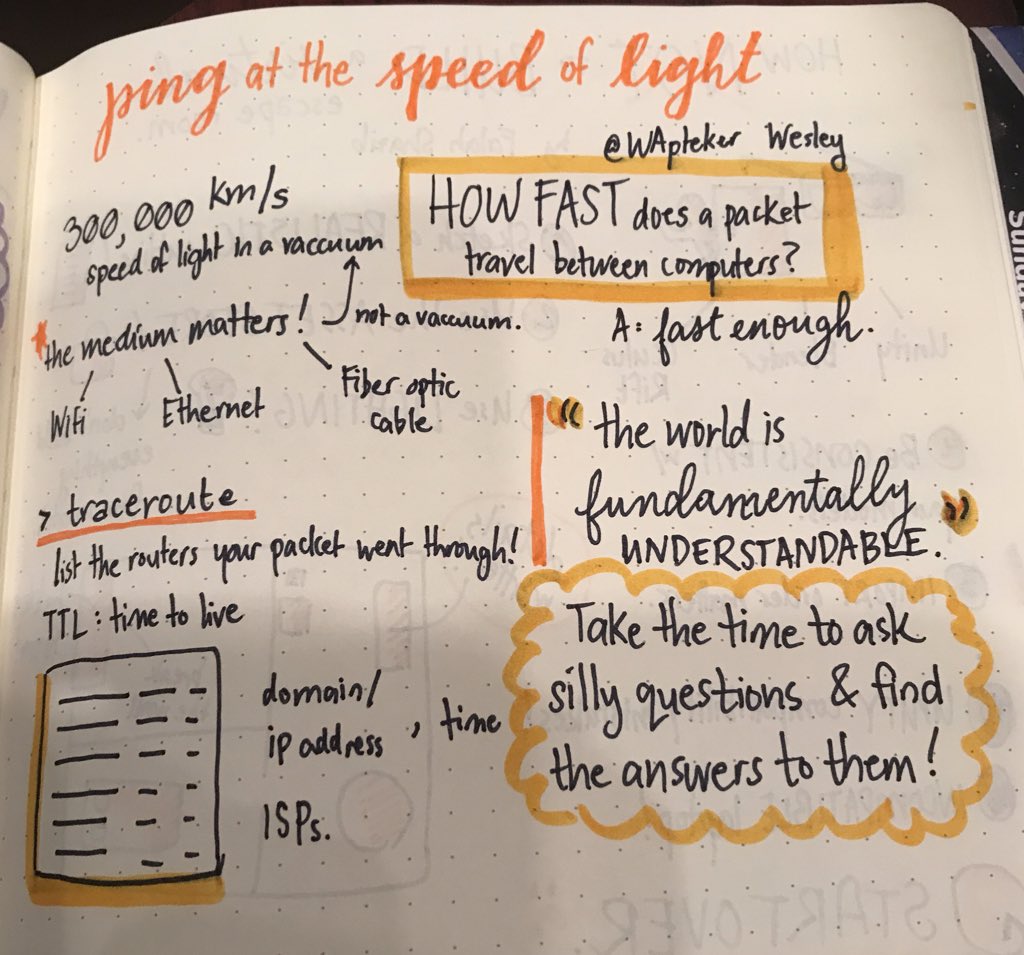 ping at the speed of light
@WApteker Wesley
300,000 km/s
speed of light in a vaccuum
HOW FAST does a packet
travel between computers?
A: fast enough.
the medium matters!
not a vaccuum.
Wifi
Ethernet
Fiber optic
cable
"the world is
fundamentally
UNDERSTANDABLE."
> traceroute
list the routers your packet went through!
TTL: time to live
domain/
ip address, time
ISPs.
Take the time to ask
silly questions & find
the answers to them!
START OVER